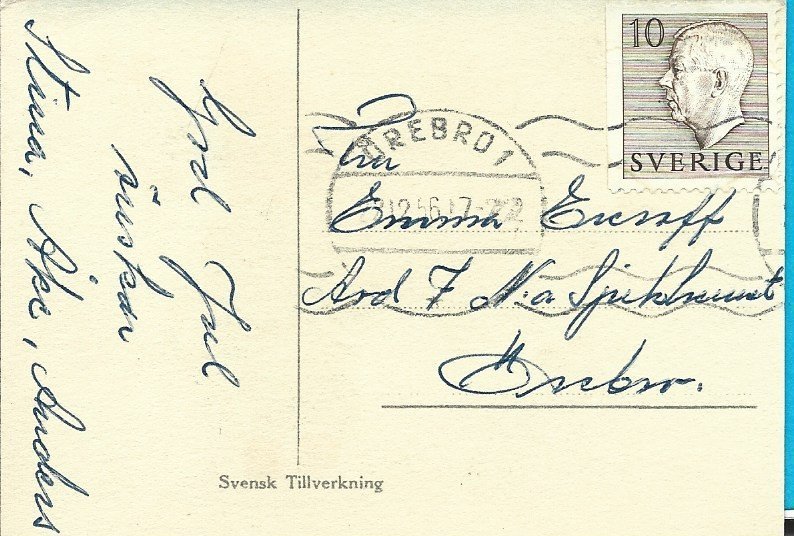 God Jul
önskar
Stina, Åke, Anders
10
SVERIGE
ÖREBRO 1
Fru
Emma
Avd 7 N:a Sjukhuset
Örebro.
Svensk Tillverkning